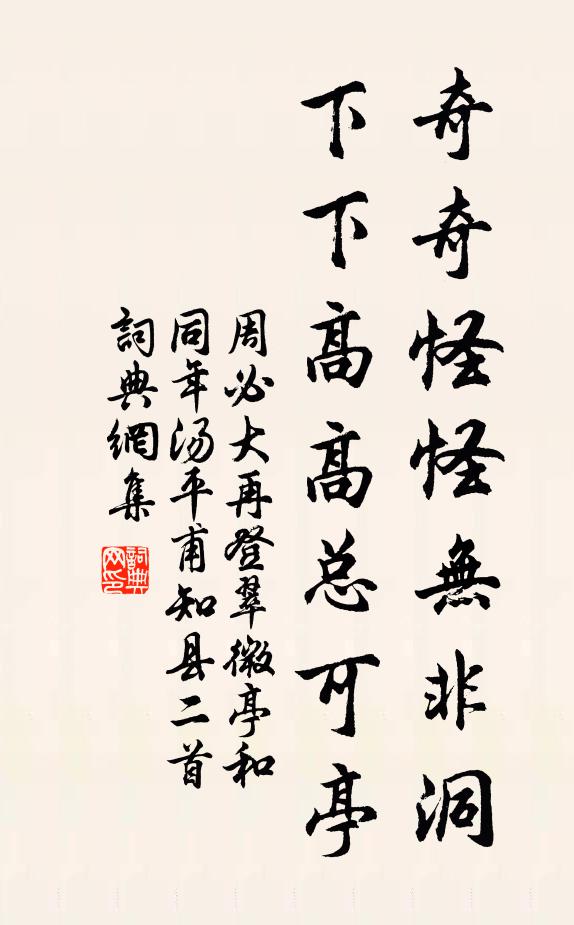 奇奇怪怪無非洞
下下高高总可亭
周必大再登翠微亭和
同年汤平甫知县二首
詞典網集
詞典
网印